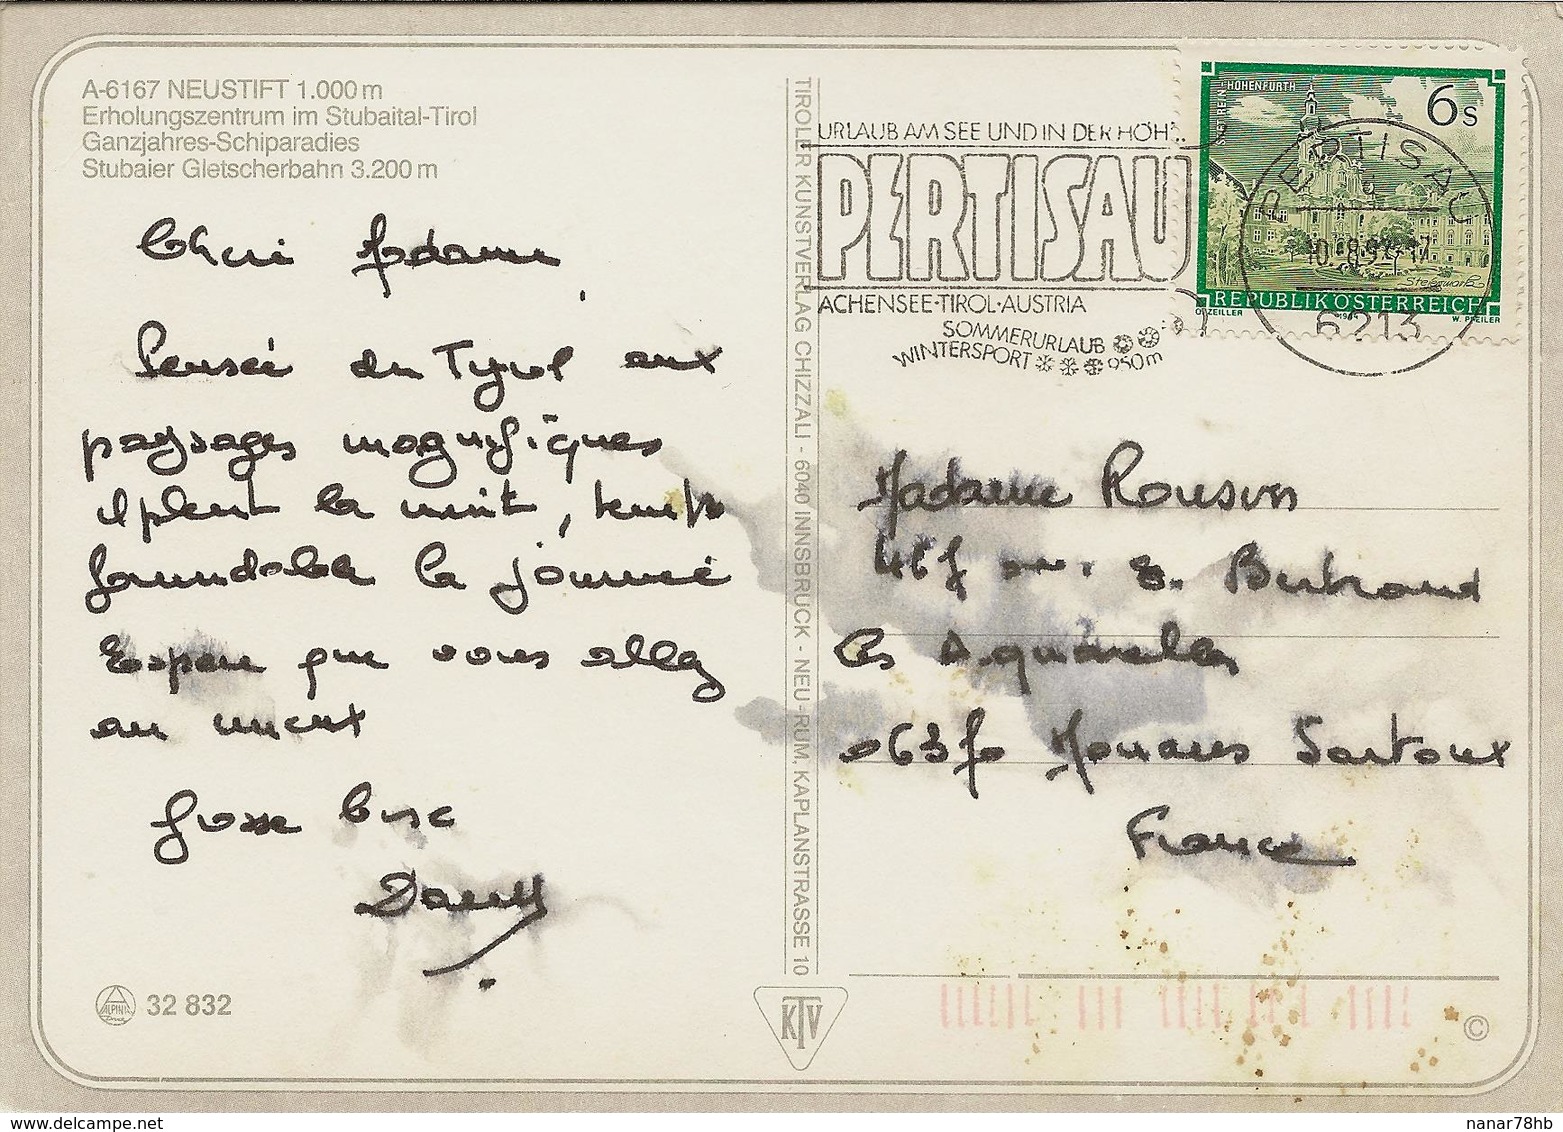 A-6167 NEUSTIFT 1.000 m
Erholungszentrum im Stubaital-Tirol
Ganzjahres-Schiparadies
Stubaier Gletscherbahn 3.200 m
Chère Madame,
Pensée du Tyrol aux
paysages magnifiques
il pleut la nuit, temps
formidable la journée
Espère que vous allez
au mieux
Grosse bise
32 832
ALPINA
TIROLER KUNSTVERLAG CHIZZALI - 6040 INNSBRUCK - NEU-RUM, KAPLANSTRASSE 10
KTV
URLAUB AM SEE UND IN DER HÖH
PERTISAU
ACHENSEE·TIROL·AUSTRIA
SOMMERURLAUB
WINTERSPORT 950m
HOHENFURTH
6 S
Steiermark
REPUBLIK ÖSTERREICH
O. ZEILLER
W. PFEILER
PERTISAU
6213
Madame
E. Bertrand
Les Aquarelles
06370 Mouans Sartoux
France
©
nanar78hb